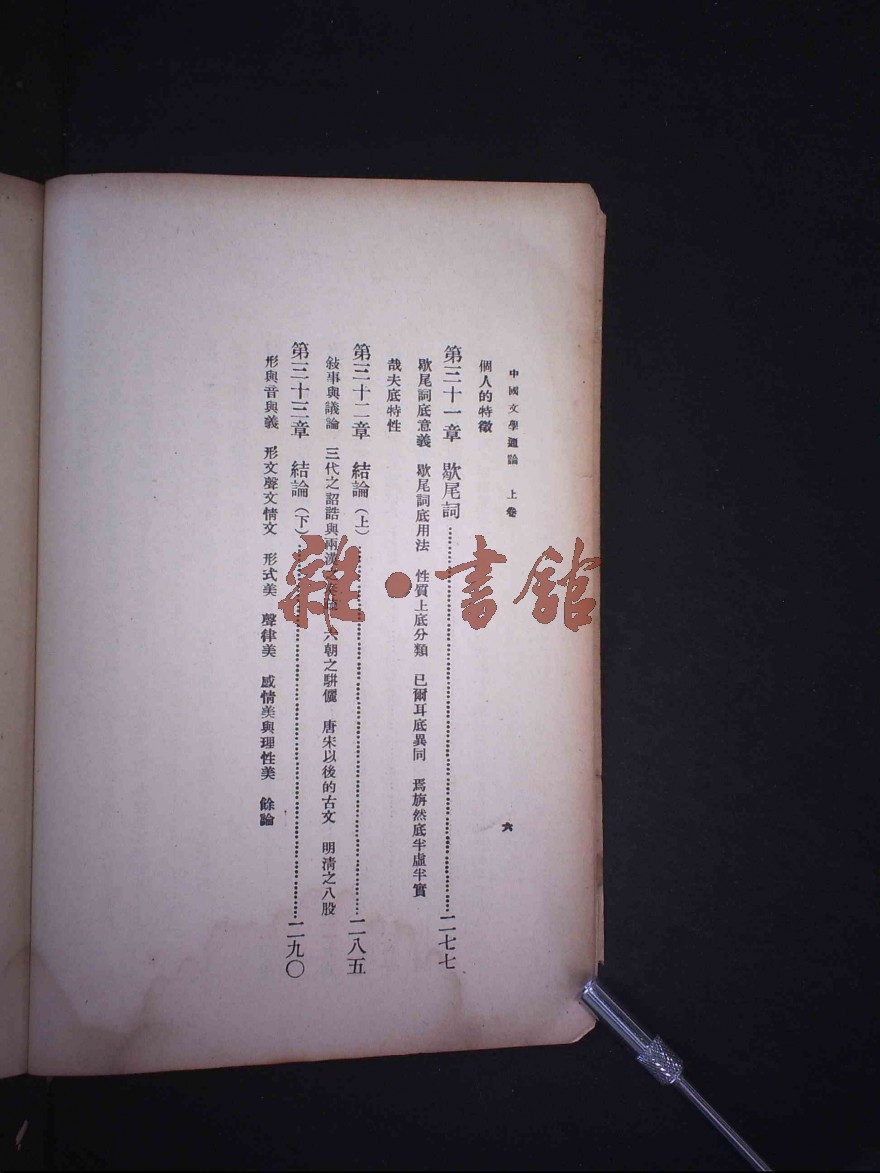 中國文學通論　上卷
六
個人的特徵
第三十一章　歇尾詞……二七七
歇尾詞底意義　歇尾詞底用法　性質上底分類　已爾耳底異同　焉旃然底半虛半實
哉夫底特性
第三十二章　結論（上）……二八五
敍事與議論　三代之詔誥與兩漢之　六朝之駢儷　唐宋以後的古文　明清之八股
第三十三章　結論（下）……二九〇
形與音與義　形文聲文情文　形式美　聲律美　感情美與理性美　餘論
雜·書館